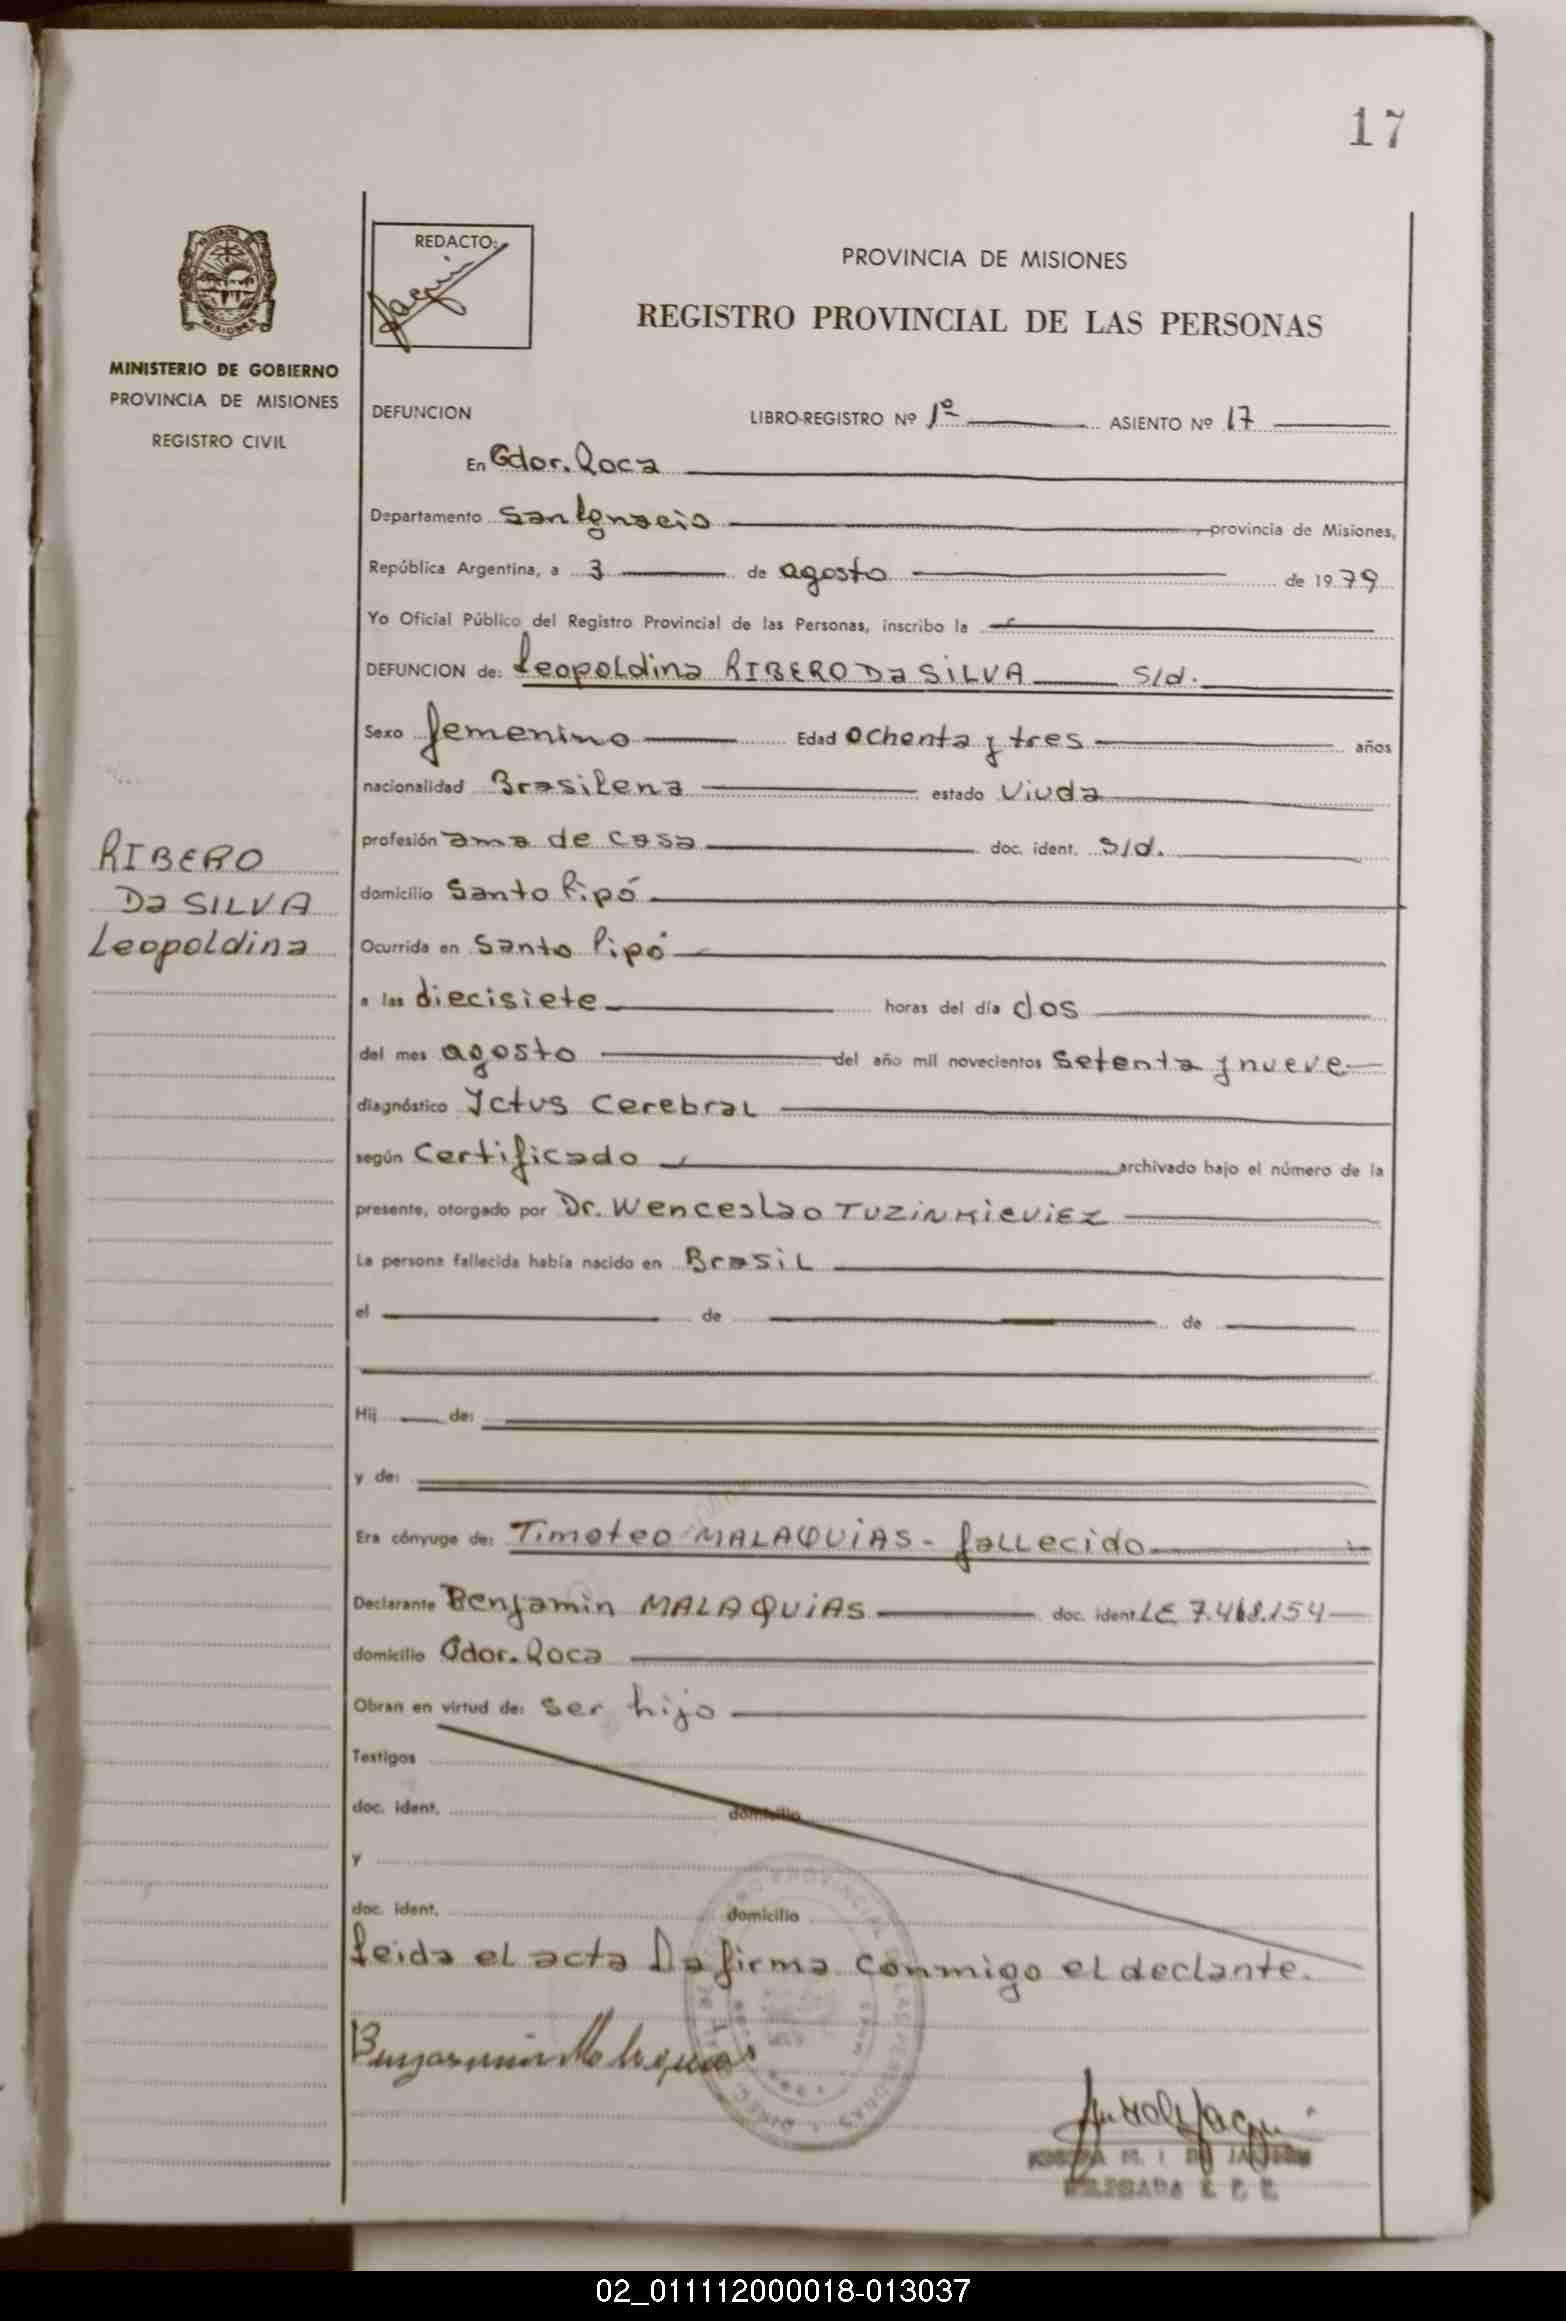 17
REDACTO:
PROVINCIA DE MISIONES
REGISTRO PROVINCIAL DE LAS PERSONAS
MINISTERIO DE GOBIERNO
PROVINCIA DE MISIONES
REGISTRO CIVIL
DEFUNCION LIBRO-REGISTRO Nº 1º ASIENTO Nº 17
En Gdor. Roca
Departamento San Ignacio, provincia de Misiones,
República Argentina, a 3 de agosto de 1979
Yo Oficial Público del Registro Provincial de las Personas, inscribo la
DEFUNCION de: Leopoldina RIBERO Da SILVA S/d.
Sexo femenino Edad ochenta y tres años
nacionalidad Brasilena estado Viuda
profesión ama de casa doc. ident. S/d.
RIBERO
Da SILVA
Leopoldina
domicilio Santo Pipó
Ocurrida en Santo Pipó
a las diecisiete horas del día dos
del mes agosto del año mil novecientos setenta y nueve
diagnóstico Ictus Cerebral
según Certificado archivado bajo el número de la
presente, otorgado por Dr. Wenceslao TUZINKIEVIEZ
La persona fallecida había nacido en Brasil
el de de
Hij de:
y de:
Era cónyuge de: Timoteo MALAQUIAS - fallecido
Declarante Benjamin MALAQUIAS doc. ident. LE 7.468.154
domicilio Gdor. Roca
Obran en virtud de: ser hijo
Testigos
doc. ident. domicilio
y
doc. ident. domicilio
Leida el acta La firma conmigo el declante.
Benjamin Malaquias
02_011112000018-013037